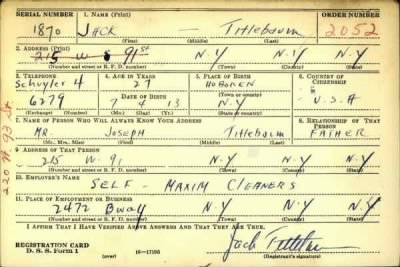 SERIAL NUMBER 1. NAME (Print) ORDER NUMBER
1870 JACK - Tittlebaum 2052
(First) (Middle) (Last)
2. ADDRESS (Print)
215 W 91 St N.Y N.Y
(Number and street or R. F. D. number) (Town) (County) (State)
3. TELEPHONE 4. AGE IN YEARS 5. PLACE OF BIRTH 6. COUNTRY OF CITIZENSHIP
Schuyler 4 27 HOBOKEN
DATE OF BIRTH (Town or county)
6279 7 4 13 N-Y U.S.A
(Exchange) (Number) (Mo.) (Day) (Yr.) (State or country)
7. NAME OF PERSON WHO WILL ALWAYS KNOW YOUR ADDRESS 8. RELATIONSHIP OF THAT PERSON
MR. JOSEPH Tittlebaum FATHER
(Mr., Mrs., Miss) (First) (Middle) (Last)
9. ADDRESS OF THAT PERSON
215 W. 91 N.Y N.Y
(Number and street or R. F. D. number) (Town) (County) (State)
10. EMPLOYER'S NAME
SELF - MAXIM CLEANERS
11. PLACE OF EMPLOYMENT OR BUSINESS
2472 Bway N.Y N.Y
(Number and street or R. F. D. number) (Town) (County) (State)
I AFFIRM THAT I HAVE VERIFIED ABOVE ANSWERS AND THAT THEY ARE TRUE.
REGISTRATION CARD
D. S. S. Form 1 (over) 16-17105 Jack Tittlebaum
(Registrant's signature)
220 W. 93 St